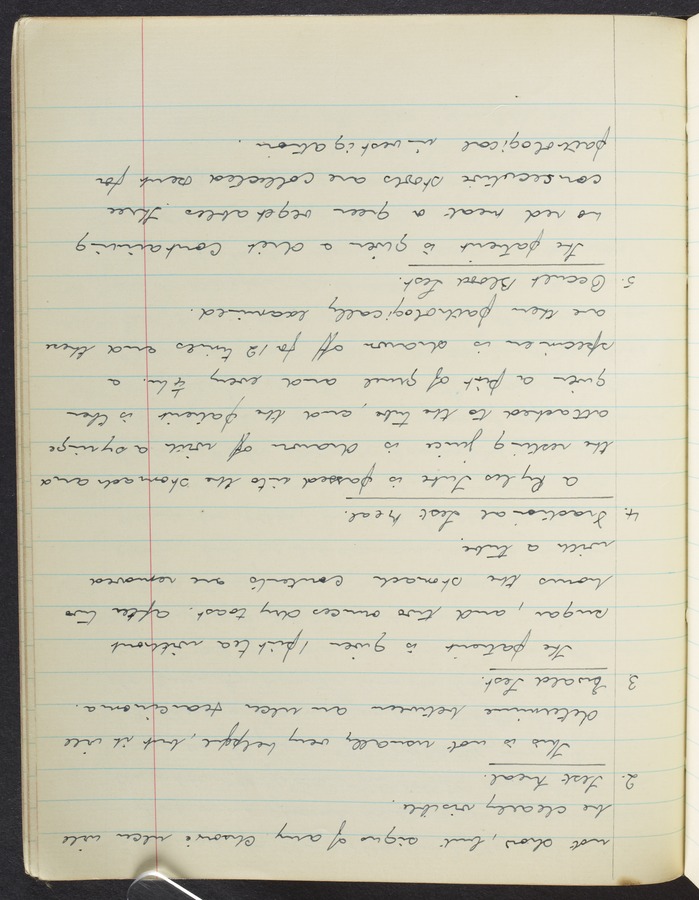 not show, but signs of any chronic ulcer will
be clearly visible.
2. Test Meal.
This is not usually very helpful, but it will
determine between an ulcer & carcinoma.
3 Ewald Test.
The patient is given 1 pint tea without
sugar, and two ounces dry toast. After two
hours the stomach contents are removed
with a tube.
4. Fractional Test Meal.
A Ryles Tube is passed into the stomach and
the resting juice is drawn off with a syringe
attached to the tube, and, the patient is then
given a pint of gruel and every ¼ hr. a
specimen is drawn off for 12 times and these
are then pathologically examined.
5. Occult Blood Test.
The patient is given a diet containing
no red meat or green vegetables. Three
consecutive stools are collected & sent for
pathological investigation.